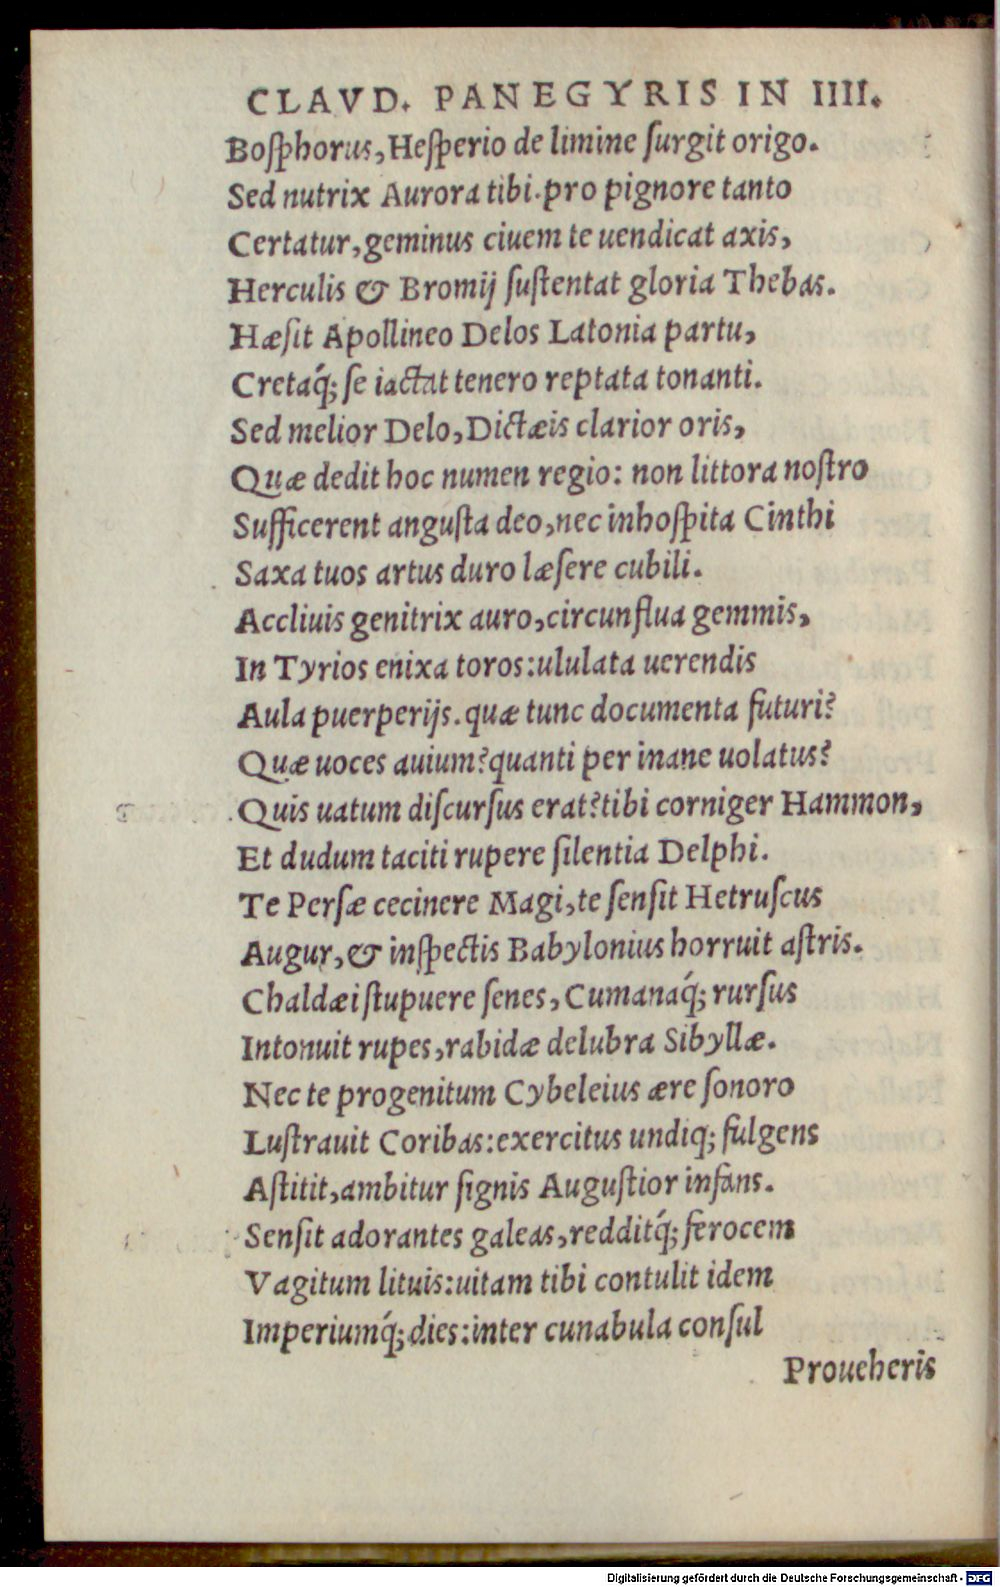 CLAVD. PANEGYRIS IN IIII.
Boſphorus, Heſperio de limine ſurgit origo.
Sed nutrix Aurora tibi. pro pignore tanto
Certatur, geminus ciuem te uendicat axis,
Herculis & Bromij ſuſtentat gloria Thebas.
Hæſit Apollineo Delos Latonia partu,
Cretaq́; ſe iactat tenero reptata tonanti.
Sed melior Delo, Dictæis clarior oris,
Quæ dedit hoc numen regio: non littora noſtro
Sufficerent anguſta deo, nec inhoſpita Cinthi
Saxa tuos artus duro læſere cubili.
Accliuis genitrix auro, circunflua gemmis,
In Tyrios enixa toros: ululata uerendis
Aula puerperijs. quæ tunc documenta futuri?
Quæ uoces auium? quanti per inane uolatus?
Quis uatum diſcurſus erat? tibi corniger Hammon,
Et dudum taciti rupere ſilentia Delphi.
Te Perſæ cecinere Magi, te ſenſit Hetruſcus
Augur, & inſpectis Babylonius horruit aſtris.
Chaldæi ſtupuere ſenes, Cumanaq́; rurſus
Intonuit rupes, rabidæ delubra Sibyllæ.
Nec te progenitum Cybeleius ære ſonoro
Luſtrauit Coribas: exercitus undiq; fulgens
Aſtitit, ambitur ſignis Auguſtior infans.
Senſit adorantes galeas, redditq́; ferocem
Vagitum lituis: uitam tibi contulit idem
Imperiumq́; dies: inter cunabula conſul
Proueheris
Digitalisierung gefördert durch die Deutsche Forschungsgemeinschaft - DFG